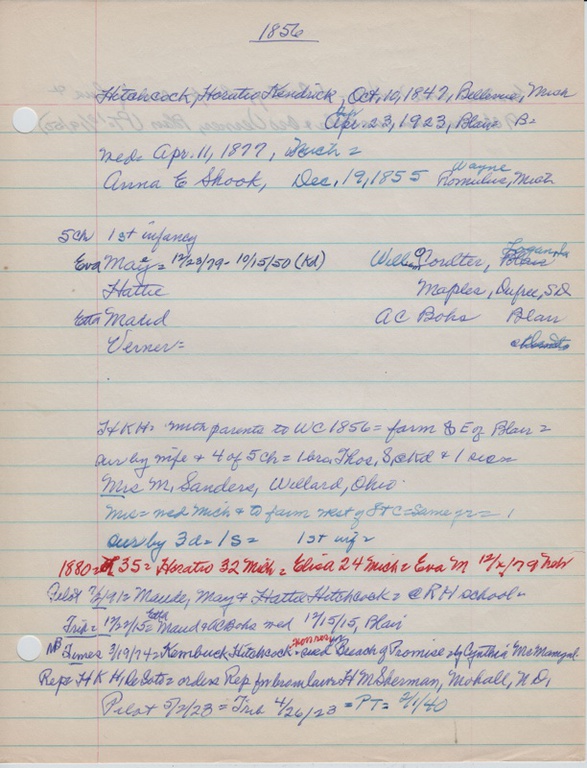 1856
Hitchcock, Horatio Kendrick, Oct, 10, 1847, Bellevue, Mich
Apr. 23, 1923, Blair = B =
Wed = Apr. 11, 1877, Mich =
Anna E Shook, Dec, 19, 1855 Wayne Romulus, Mich
5 ch 1st infancy
Eva May = 12/23/79 - 10/15/50 (Kd) Coulter, Blair
Hattie Maples, Dupree, S.D.
Etta Maud A C Bohs Blair
Verner =
H K H = with parents to WC 1856 = farm E of Blair =
sur by wife + 4 of 5 ch = 1 bro. Thos, + 1 sis =
Mrs M. Sanders, Willard, Ohio.
Mrs = wed Mich + to farm west of = Same yr =
sur by 3d = 1s = 1st inf =
1880 = 35 = Horatio 32 Mich = Eliza 24 Mich = Eva M 12/79 Neb
Pilot = Maude, May + Hattie Hitchcock = RH school =
Trib = = Etta Maud + AC Bohs wed 12/15/15, Blair
Times 3/19/74 = Hitchcock = sued Breach of Promise = by Cynthia
Rep = H K H, DeSoto = orders Rep for H M Sherman, Mohall, N.D,
Pilot 5/2/23 = Trib 4/26/23 = PT = 2/1/40